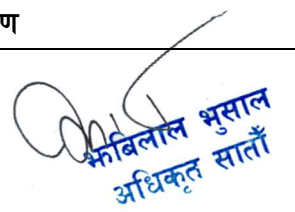 ण
झबिलाल भुसाल
अधिकृत सातौँ